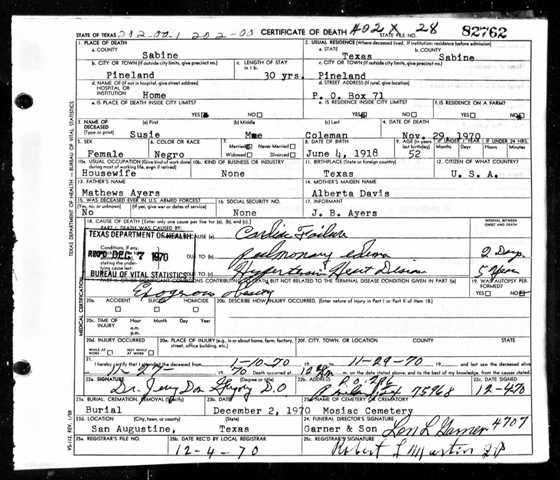 STATE OF TEXAS 202-00-1 202-00 CERTIFICATE OF DEATH #02 X 28 STATE FILE NO. 82762
1. PLACE OF DEATH 2. USUAL RESIDENCE (Where deceased lived. If institution: residence before admission)
a. COUNTY Sabine a. STATE Texas b. COUNTY Sabine
b. CITY OR TOWN (If outside city limits, give precinct no.) c. LENGTH OF STAY in 1 b. c. CITY OR TOWN (If outside city limits, give precinct no.)
Pineland 30 yrs. Pineland
d. NAME OF (If not in hospital, give street address) HOSPITAL OR INSTITUTION Home d. STREET ADDRESS (If rural, give location) P. O. Box 71
e. IS PLACE OF DEATH INSIDE CITY LIMITS? YES NO e. IS RESIDENCE INSIDE CITY LIMITS? YES NO f. IS RESIDENCE ON A FARM? YES NO
3. NAME OF DECEASED (Type or print) (a) First (b) Middle (c) Last 4. DATE OF DEATH
Susie Mae Coleman Nov. 29, 1970
5. SEX 6. COLOR OR RACE 7. Married Never Married Widowed Divorced 8. DATE OF BIRTH 9. AGE (In years last birthday) IF UNDER 1 YEAR Months Days IF UNDER 24 HRS. Hours Minutes
Female Negro June 4, 1918 52
10a. USUAL OCCUPATION (Give kind of work done during most of working life, even if retired) 10b. KIND OF BUSINESS OR INDUSTRY 11. BIRTHPLACE (State or foreign country) 12. CITIZEN OF WHAT COUNTRY?
Housewife None Texas U. S. A.
13. FATHER'S NAME 14. MOTHER'S MAIDEN NAME
Mathews Ayers Alberta Davis
15. WAS DECEASED EVER IN U.S. ARMED FORCES? (Yes, no, or unknown) (If yes, give war or dates of service) 16. SOCIAL SECURITY NO. 17. INFORMANT
No None J. B. Ayers
18. CAUSE OF DEATH (Enter only one cause per line for (a), (b), and (c).) INTERVAL BETWEEN ONSET AND DEATH
PART I. DEATH WAS CAUSED BY:
TEXAS DEPARTMENT OF HEALTH CAUSE (a) Cardiac Failure
Conditions, if any, DEC 7 1970 Pulmonary edema 2 Days
stating the underlying cause last. Hypertensive Heart Disease 5 Years
BUREAU OF VITAL STATISTICS
DEATH BUT NOT RELATED TO THE TERMINAL DISEASE CONDITION GIVEN IN PART I (a) 19. WAS AUTOPSY PERFORMED? YES NO
Exogenous Obesity
20a. ACCIDENT SUICIDE HOMICIDE 20b. DESCRIBE HOW INJURY OCCURRED. (Enter nature of injury in Part I or Part II of item 18.)
20c. TIME OF INJURY Hour Month Day Year
20d. INJURY OCCURRED WHILE AT WORK NOT WHILE AT WORK 20e. PLACE OF INJURY (e.g., in or about home, farm, factory, street, office building, etc.) 20f. CITY, TOWN, OR LOCATION COUNTY STATE
21. I hereby certify that I attended the deceased from 1-10-70 to 11-29-70 and last saw the deceased alive on 70 Death occurred at m. on the date stated above, and to the best of my knowledge, from the causes stated.
22a. SIGNATURE (Degree or title) 22b. ADDRESS 22c. DATE SIGNED
Dr. D.O 75968 12-4-70
23a. BURIAL, CREMATION, REMOVAL (Specify) 23b. DATE 23c. NAME OF CEMETERY OR CREMATORY
Burial December 2, 1970 Mosiac Cemetery
23d. LOCATION (City, town, or county) (State) 24. FUNERAL DIRECTOR'S SIGNATURE
San Augustine, Texas Garner & Son Garner 4707
25a. REGISTRAR'S FILE NO. 25b. DATE REC'D BY LOCAL REGISTRAR 25c. REGISTRAR'S SIGNATURE
12-4-70 Robert L Martin JP
TEXAS DEPARTMENT OF HEALTH — BUREAU OF VITAL STATISTICS
MEDICAL CERTIFICATION